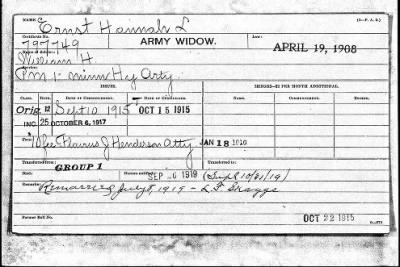 NAME: Ernst Hannah L (3—P. A. D.)
Certificate No. 797749 ARMY WIDOW. Law: APRIL 19, 1908
William H
Service:
Pvt 1- minn Hy Arty.
ISSUE. MINORS—$2 PER MONTH ADDITIONAL.
CLASS. RATE. DATE OF COMMENCEMENT. DATE OF CERTIFICATE. NAME. COMMENCEMENT. ENDING.
Orig. 12 Sept 10 1915 OCT 15 1915
INC. 25 OCTOBER 6, 1917
Fee Flavius J Henderson Atty JAN 18 1916
Transferred from: GROUP 1 Transferred to:
1919
Remarks: Remarried July 1, 1919 -
Former Roll No. OCT 22 1915